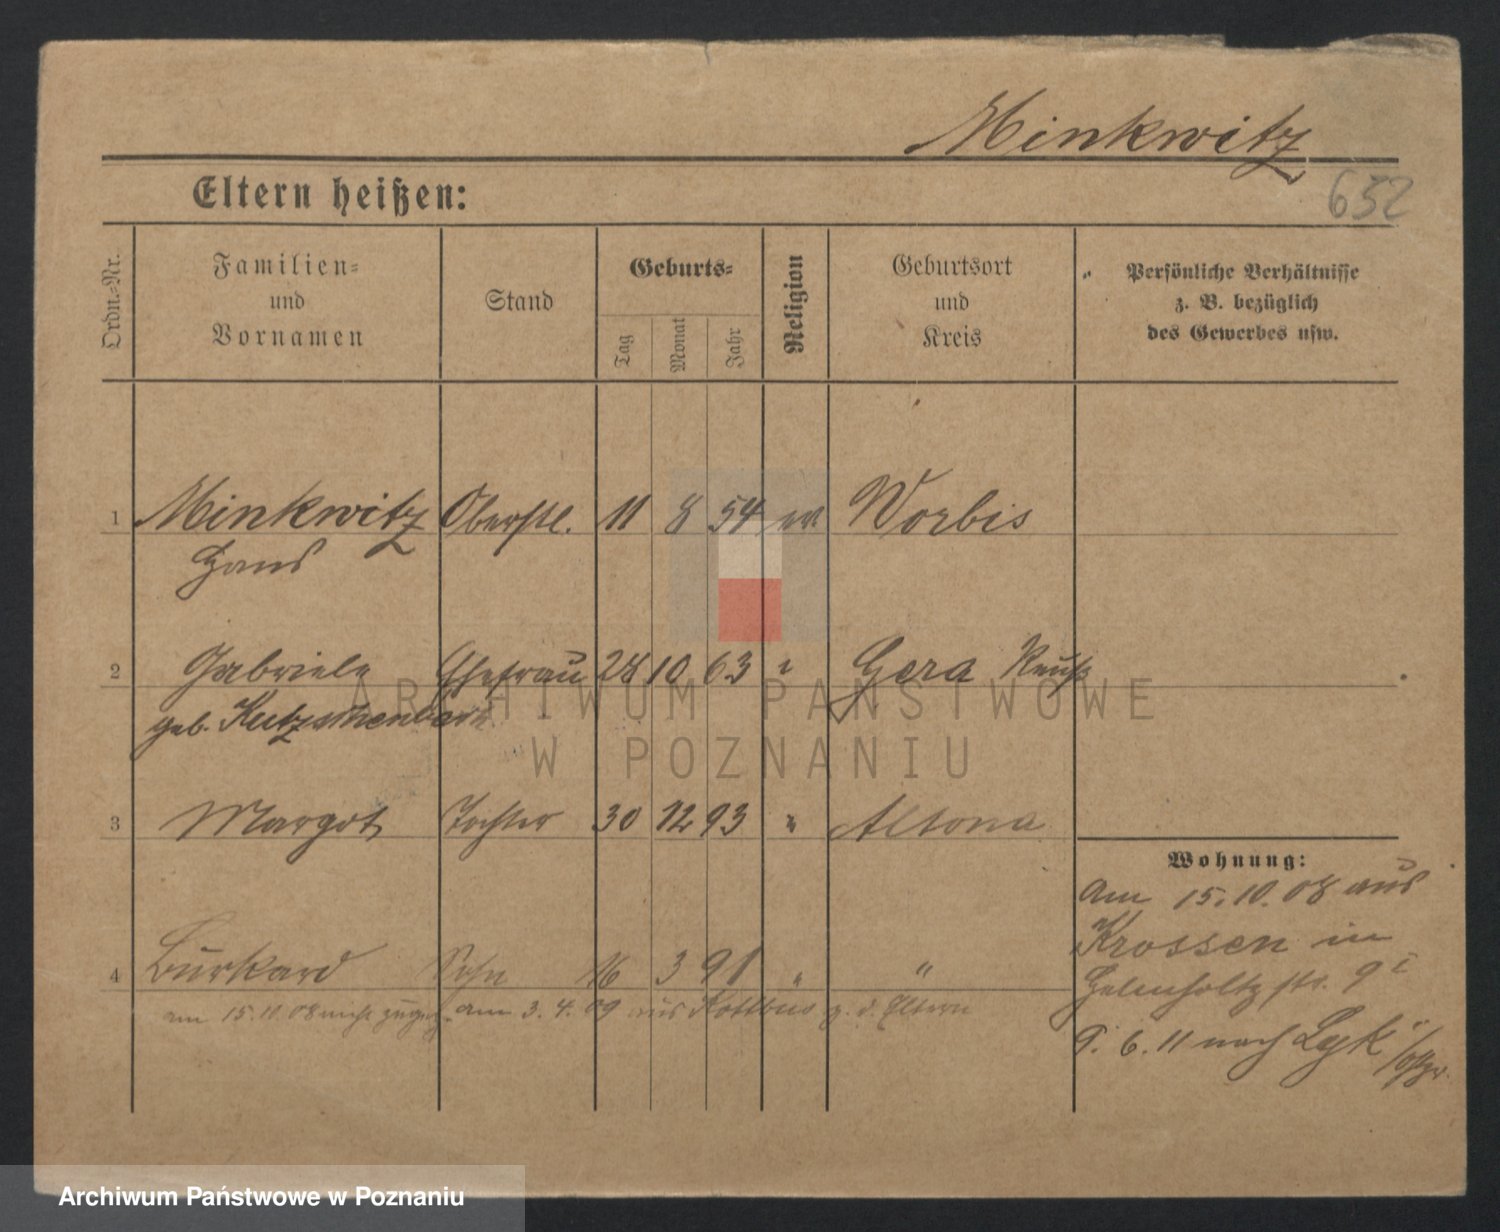 Minkwitz
652
Eltern heißen:
Ordn.-Nr.
Familien-
und
Vornamen
Stand
Geburts-
Tag
Monat
Jahr
Religion
Geburtsort
und
Kreis
Persönliche Verhältnisse
z. B. bezüglich
des Gewerbes usw.
1 Minkwitz Oberstl. 11 8 54 ev Worbis
Hans
2 Gabriele Ehefrau 28 10 63 " Gera Reuß
geb. Kutzschenbach
3 Margot Tochter 30 12 93 " Altona
Wohnung:
am 15.10.08 aus
Krossen in
4 Burkard Sohn 16 3 91 " "
str. 9 I
am 15.10.08 nicht zugez. am 3.4.09 aus Kottbus z. d. Eltern
9.6.11 nach Lyk /Ostpr.
ARCHIWUM PAŃSTWOWE
W POZNANIU
Archiwum Państwowe w Poznaniu